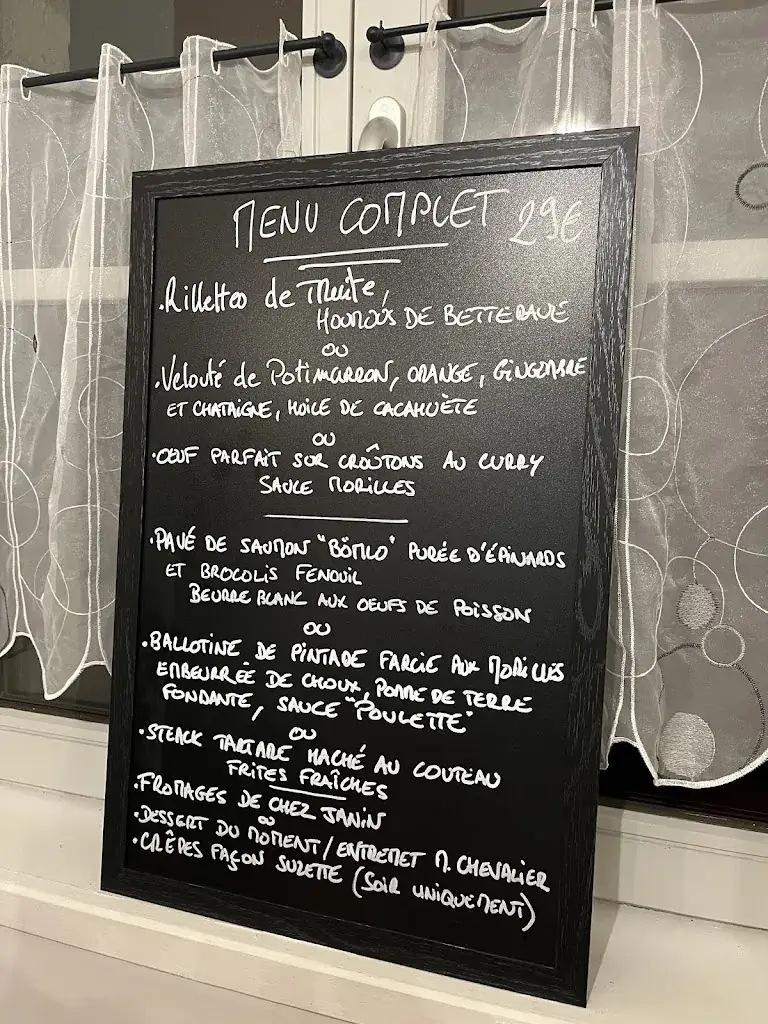 MENU COMPLET 29€
.Rillettes de Truite,
HOUMOUS DE BETTERAVE
OU
.Velouté de Potimarron, ORANGE, GINGEMBRE
ET CHATAIGNE, HUILE DE CACAHUÈTE
OU
.OEUF PARFAIT SUR CROÛTONS AU CURRY
SAUCE MORILLES
.PAVÉ DE SAUMON "BÖMLO" PURÉE D'ÉPINARDS
ET BROCOLIS FENOUIL
BEURRE BLANC AUX OEUFS DE POISSON
OU
.BALLOTINE DE PINTADE FARCIE AUX MORILLES
EMBEURRÉE DE CHOUX, POMME DE TERRE
FONDANTE, SAUCE "POULETTE"
OU
.STEACK TARTARE HACHÉ AU COUTEAU
FRITES FRAÎCHES
.FROMAGES DE CHEZ JANIN
OU
.DESSERT DU MOMENT / ENTREMET M. CHEVALIER
.CRÊPES FAÇON SUZETTE (SOIR UNIQUEMENT)